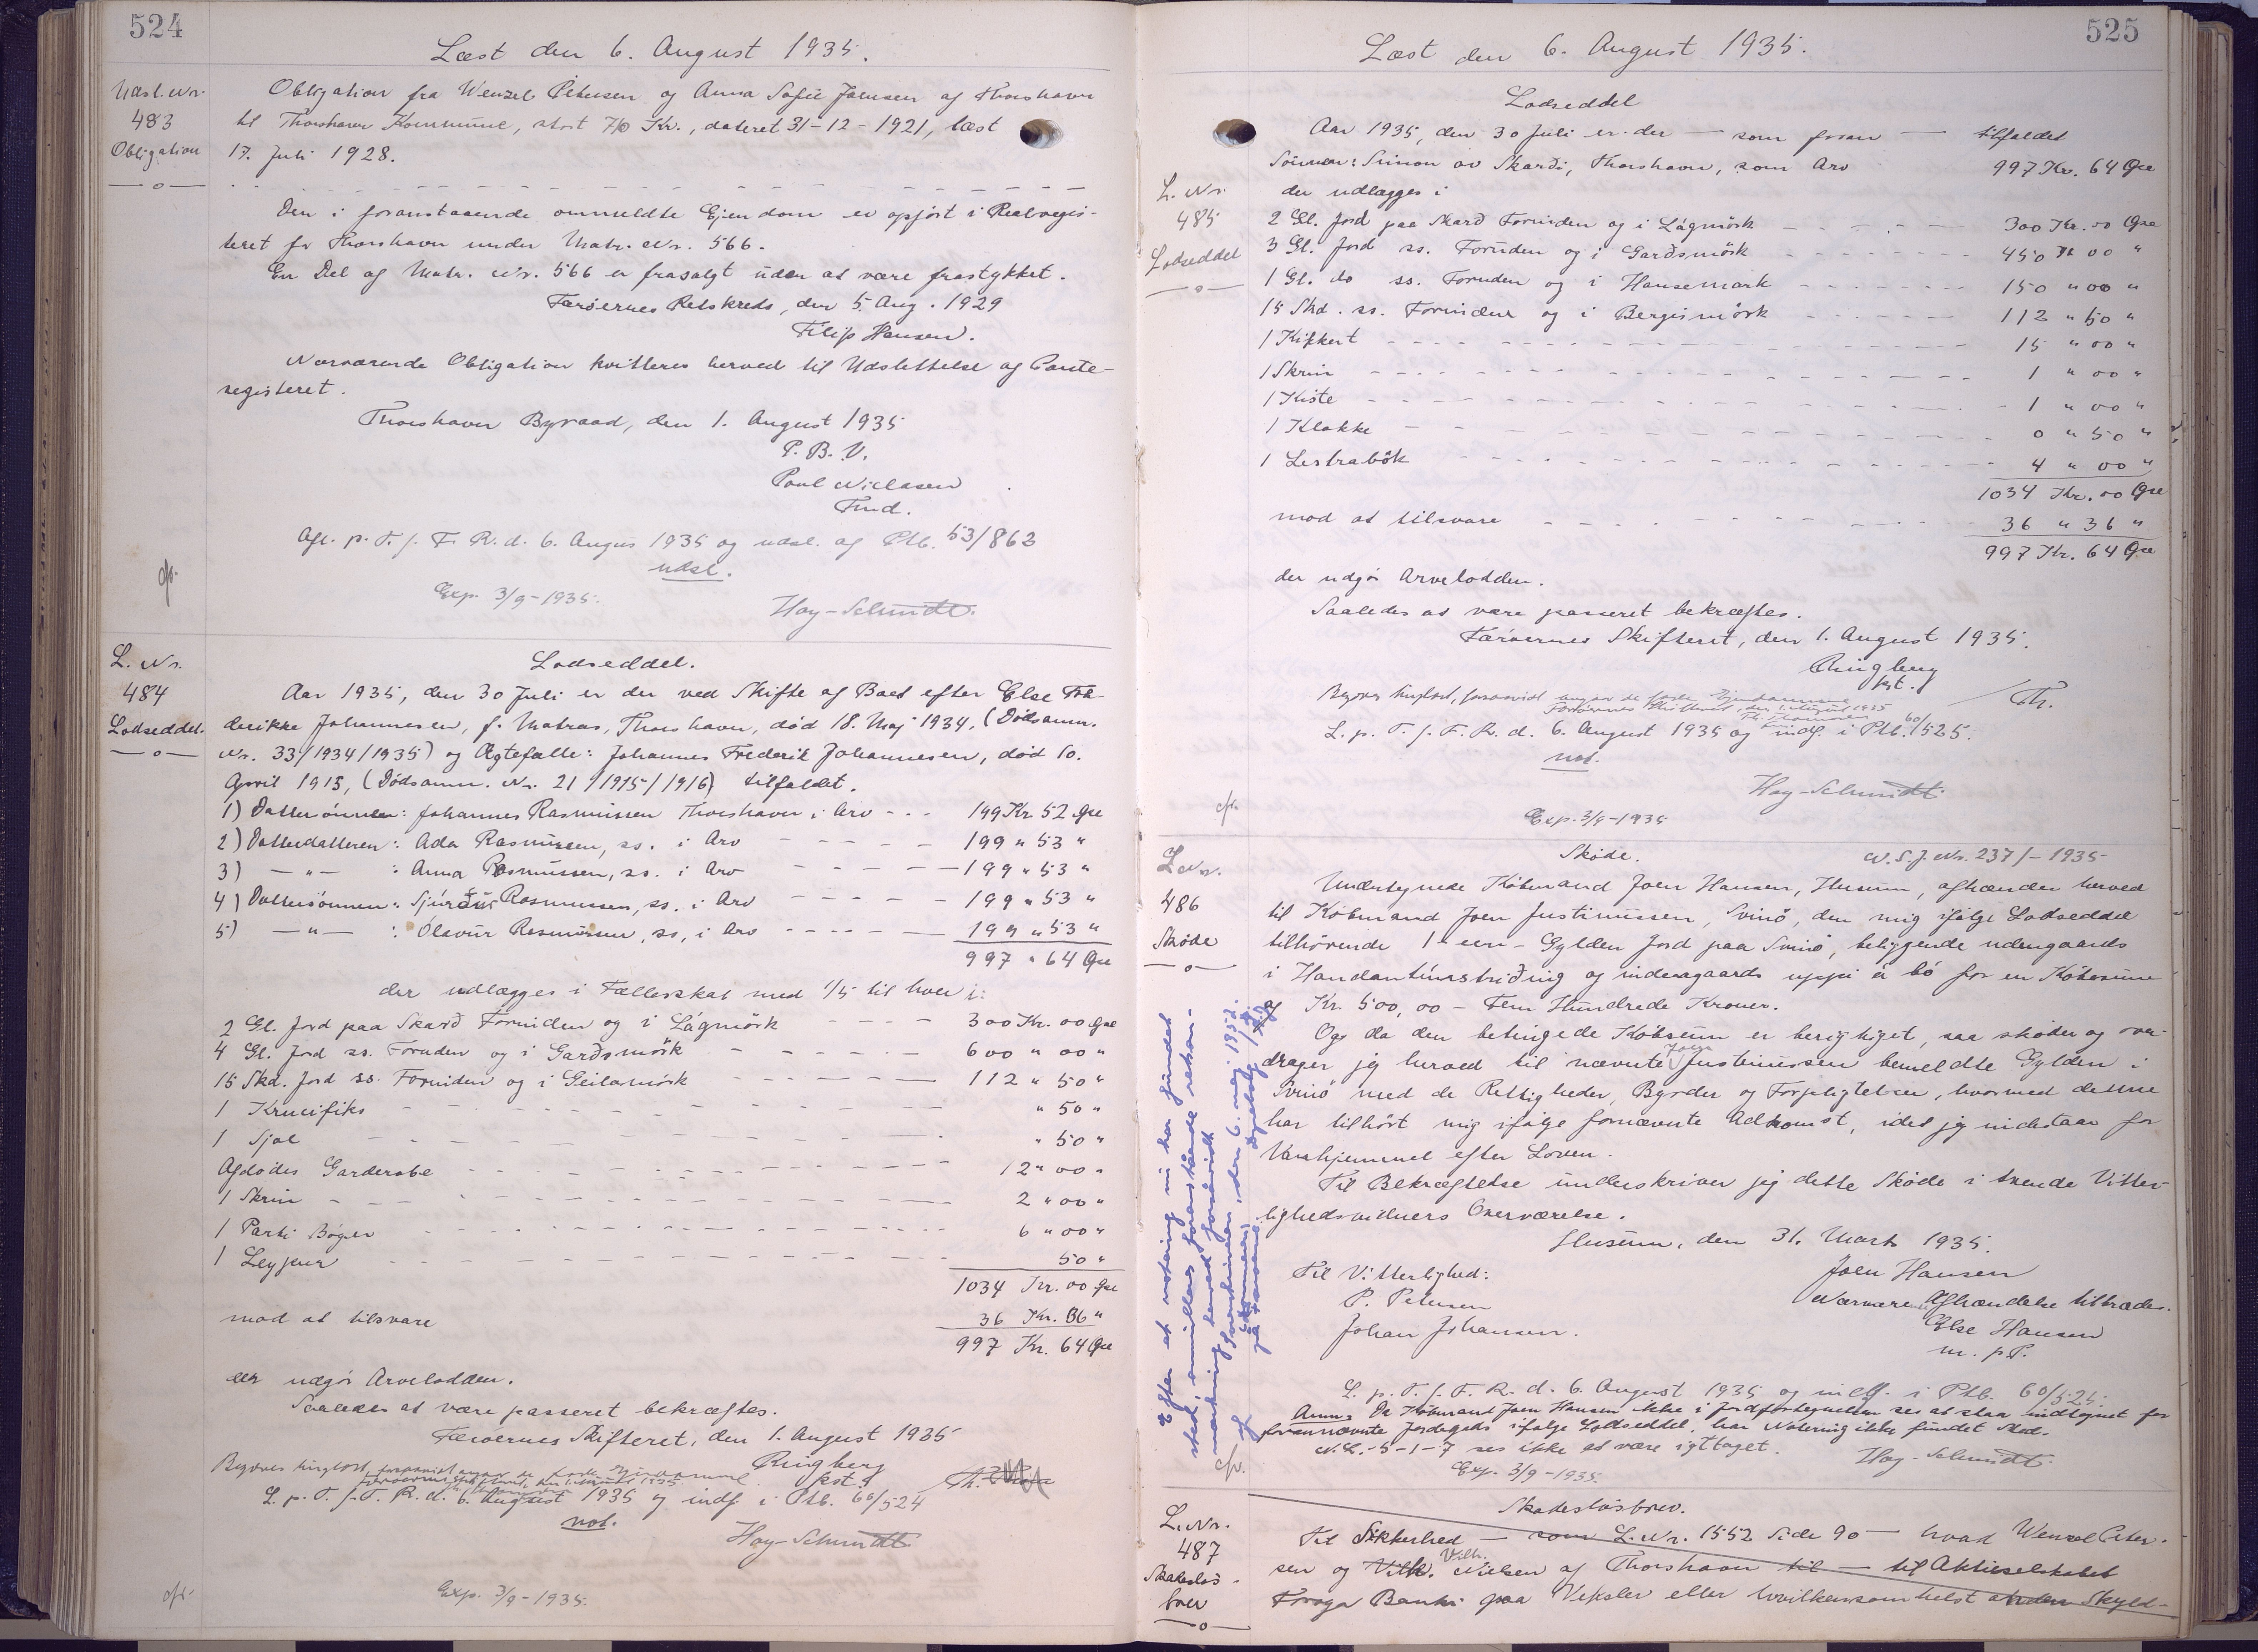 524
Læst den 6. August 1935.
Udsl. Nr.
483
Obligation
Obligation fra Wenzel Petersen og Anna Sofie Joensen af Thorshavn
til Thorshavn Kommune, stort 710 Kr., dateret 31-12-1921, læst
17. Juli 1928.
Den i foranstaaende ommeldte Ejendom er opført i Realregis-
teret for Thorshavn under Matr. Nr. 566.
En Del af Matr. Nr. 566 er frasolgt uden at være frastykket.
Færøernes Retskreds, den 5. Aug. 1929
Filip Hansen.
Nærværende Obligation kvitteres herved til Udslettelse af Pante-
registeret.
Thorshavn Byraad, den 1. August 1935
P. B. V.
Poul Niclasen
Fmd.
Afl. p. T. f. F. R. d. 6. Augus 1935 og udsl. af Ptb. 53/862
udsl.
Exp. 3/9-1935.
Hoy-Schmidt.
L. Nr.
484
Lodseddel.
Lodseddel.
Aar 1935, den 30 Juli er der ved Skifte af Boet efter Else Fre-
derikke Johannesen, f. Matras, Thorshavn, død 18. Maj 1934. (Dødsanm.
Nr. 33/1934/1935) og Ægtefælle: Johannes Frederik Johannesen, død 10.
April 1915, (Dødsanm. Nr. 21/1915/1916) tilfaldet.
1) Dattersønnen: Johannes Rasmussen Thorshavn i Arv - - - 199 Kr. 52 Øre
2) Datterdatteren: Ada Rasmussen, ss. i Arv - - - - - 199 " 53 "
3) — " — : Anna Rasmussen, ss. i Arv - - - - 199 " 53 "
4) Dattersønnen: Sjúrður Rasmussen, ss. i Arv - - - - - 199 " 53 "
5) — " — : Ólavur Rasmussen, ss, i Arv - - - - - 199 " 53 "
997 " 64 Øre
der udlægges i Fællesskab med 1/5 til hver i:
2 Gl. Jord paa Skarð Foruden og i Lágmörk - - - - 300 Kr. 00 Øre
4 Gl. Jord ss. Foruden og i Garðsmörk - - - - - 600 " 00 "
15 Skd. Jord ss. Foruden og i Geilarmörk - - - - - 112 " 50 "
1 Krucifiks - - - - - " 50 "
1 Sjal - - - - - " 50 "
Afdødes Garderobe - - - - - 12 " 00 "
1 Skrin - - - - - 2 " 00 "
1 Parti Bøger - - - - - 6 " 00 "
1 Leypur - - - - - 50 "
1034 Kr. 00 Øre
mod at tilsvare 36 Kr. 36 "
997 Kr. 64 Øre
der udgør Arvelodden.
Saaledes at være passeret bekræftes.
Færøernes Skifteret, den 1. August 1935
Ringberg
kst.
Begæres tinglyst, forsaavidt angaar de faste Ejendomme
Færøernes Skifteret, den 1. August 1935
L. p. T. f. F. R. d. 6. August 1935 og indf. i Ptb. 60/524
not.
Hoy-Schmidt
Exp. 3/9-1935.
525
Læst den 6. August 1935.
L. Nr.
485
Lodseddel
Lodseddel
Aar 1935, den 30 Juli er der — som foran — tilfaldet
Sønnen: Simon av Skarði, Thorshavn, som Arv 997 Kr. 64 Øre
der udlægges i
2 Gl. Jord paa Skarð Foruden og i Lágmörk - - - - 300 Kr. 00 Øre
3 Gl. Jord ss. Foruden og i Garðsmörk - - - - 450 " 00 "
1 Gl. do ss. Foruden og i Hansemark - - - - 150 " 00 "
15 Skd. ss. Foruden og i Bergismörk - - - - 112 " 50 "
1 Kikkert - - - - 15 " 00 "
1 Skrin - - - - 1 " 00 "
1 Kiste - - - - 1 " 00 "
1 Klokke - - - - 0 " 50 "
1 Lestrabók - - - - 4 " 00 "
1034 Kr. 00 Øre
mod at tilsvare - - - - 36 " 36 "
997 Kr. 64 Øre
der udgør Arvelodden.
Saaledes at være passeret bekræftes.
Færøernes Skifteret, den 1. August 1935.
Ringberg
kst.
Begæres tinglyst, forsaavidt angaar de faste Ejendomme
Færøernes Skifteret, den 1. August 1935
Th.
L. p. T. f. F. R. d. 6. August 1935 og indf. i Ptb. 60/525.
not.
Hoy-Schmidt
Exp. 3/9-1935
L. Nr.
486
Skøde
Skøde. N. S. J. Nr. 237/-1935
Undertegnede Købmand Joen Hansen, Husum, afhænder herved
til Købmand Joen Justinussen, Svinö, den mig ifølge Lodseddel
tilhørende 1-een- Gylden Jord paa Svinö, beliggende udengaards
i Handantúnstriðing og indengaards uppi á bó for en Købesum
Kr. 500,00 - Fem Hundrede Kroner.
Og da den betingede Købesum er berigtiget, saa skøder og over-
drager jeg herved til nævnte Joen Justinussen bemeldte Gylden i
Svinö med de Rettigheder, Byrder og Forpligtelser, hvormed denne
har tilhørt mig ifølge fornævnte Adkomst, idet jeg indestaar for
Vanhjemmel efter Loven.
Til Bekræftelse underskriver jeg dette Skøde i tvende Vitter-
lighedsvidners Overværelse.
Husum, den 31. Marts 1935.
Til Vitterlighed:
P. Petersen
Johan Johansen.
Joen Hansen
Nærværende Afhændelse tiltrædes.
Else Hansen
m. p. P.
L. p. T. f. F. R. d. 6. August 1935 og indf. i Ptb. 60/525.
Anm. Da Købmand Joen Hansen ikke i Jordfortegnelsen ses at staa indtegnet for
forannævnte Jordegods ifølge Lodseddel, har Notering ikke fundet Sted.
N.L.-5-1-7 ses ikke at være iagttaget.
Hoy-Schmidt.
Exp. 3/9-1935
Efter at notering nu har fundet
sted, annulleres foranstående retsan-
mærkning herved forsåvidt
Sorenskriveren, den 6. maj 1952.
L. Nr.
487
Skadesløs-
brev
Skadesløsbrev.
Til Sikkerhed — som L. Nr. 1552 Side 90 — hvad Wenzel Peter-
sen og Vilh. Nielsen af Thorshavn til — til Aktieselskabet
Føroya Banki paa Veksler eller hvilkensomhelst anden Skyld-